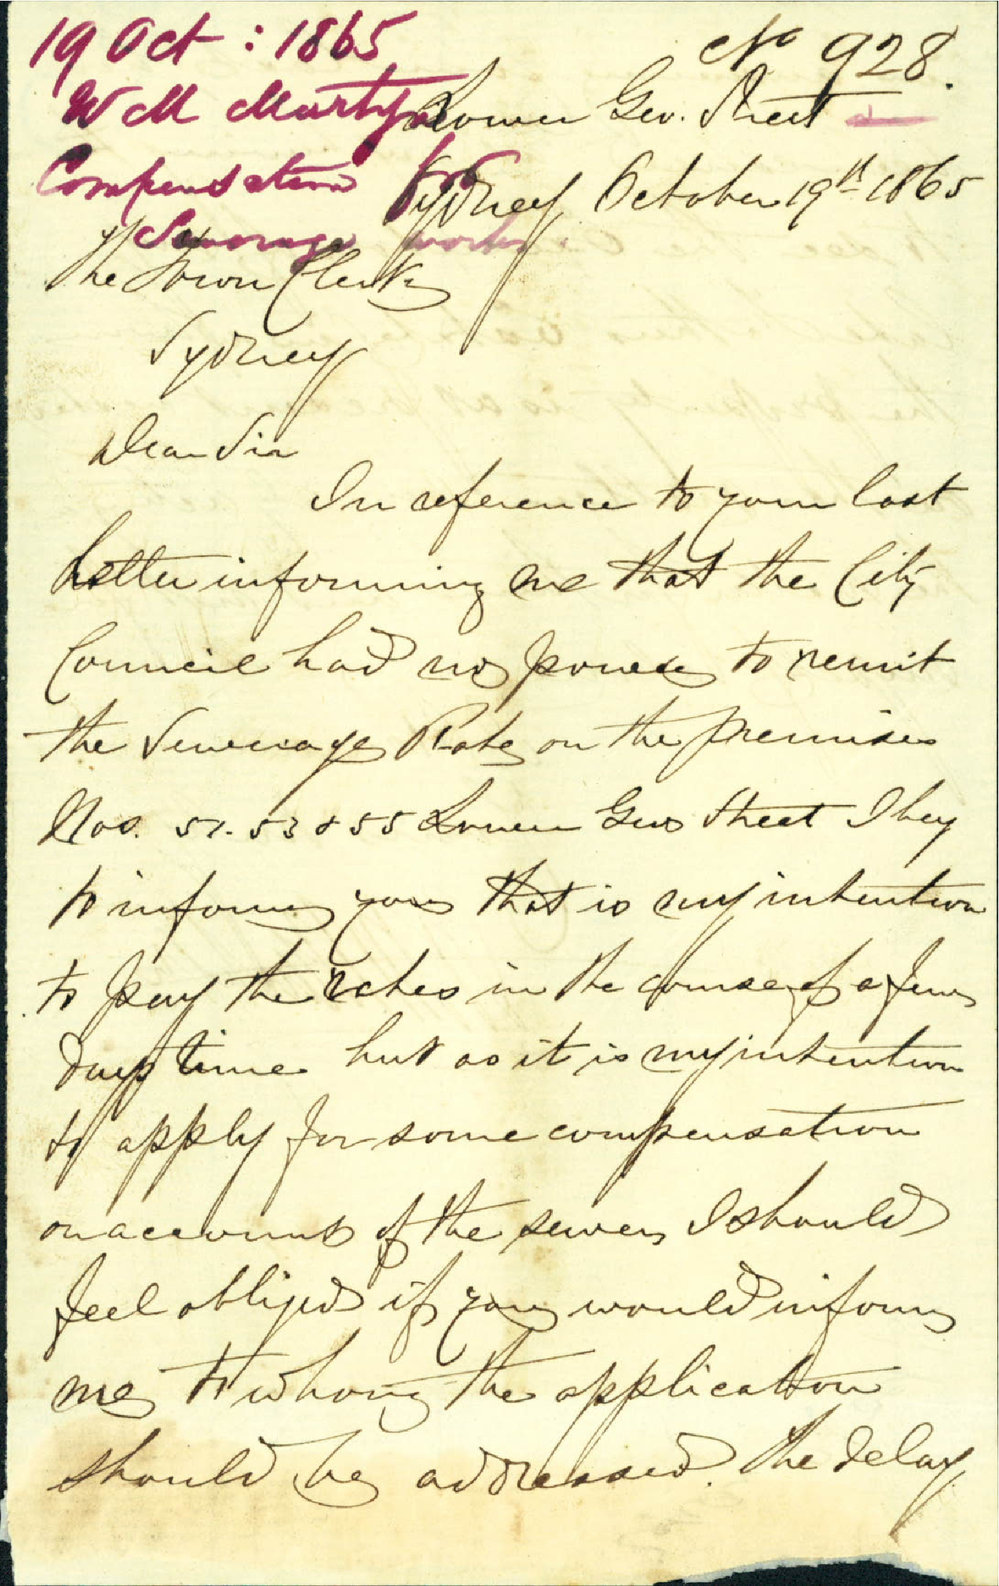 19 Oct : 1865
No 928.
W M Martyn
Lower Geo. Street
Compensation for
Sydney October 19th 1865
Sewerage works
The Town Clerk
Sydney
Dear Sir
In reference to your last
letter informing me that the City
Council had no power to remit
the Sewerage Rate on the premises
Nos. 51. 53 & 55 Lower Geo Street I beg
to inform you that is my intention
to pay the rates in the course of a few
days time but as it is my intention
to apply for some compensation
on account of the sewer, I should
feel obliged if you would inform
me to whom the application
should be addressed. The delay